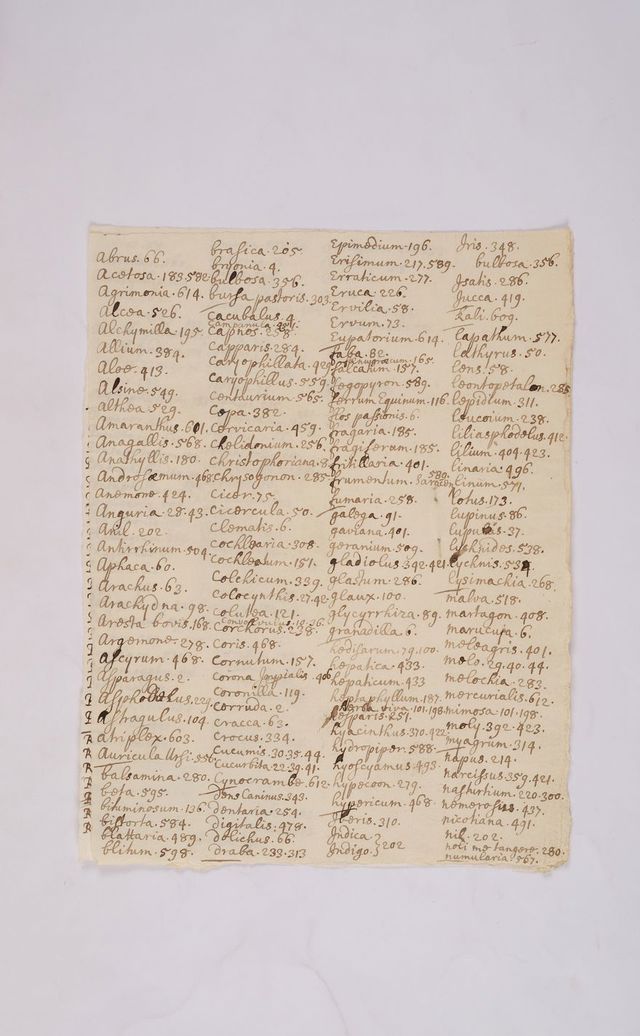 Abrus. 66.
Acetosa. 183. 582
Agrimonia. 614.
Alcea. 526.
Alchymilla. 195
Allium. 384.
Aloe. 413.
Alsine. 549.
Althea. 529.
Amaranthus. 601.
Anagallis. 568.
Anthyllis. 180.
Androsæmum. 468
Anemone. 424.
Anguria. 28. 43.
Anil. 202.
Antirrhinum. 504
Aphaca. 60.
Arachus. 63.
Arachydna. 98.
Aresta bovis. 168
Argemone. 278.
Ascyrum. 468.
Asparagus. 2.
Asphodelus.
Astragulus. 104
atriplex. 603.
Auricula Ursi. 556
balsamina. 280.
beta. 595.
bituminosum. 136.
bistorta. 584.
blattaria. 489.
blitum. 598.
brasica. 205
brionia. 4.
bulbosa. 356.
bursa pastoris. 303.
Cacubalus. 4.
Campanula.
Capnos. 258
Capparis. 284.
Caryophillata. 429
Caryophillus. 559
Centaurium. 565.
Cepa. 382.
Cervicaria. 459.
Chelidonium. 256.
Christophoriana. 8
Chrysogonon. 285
Cicer. 75.
Cicercula. 50.
Clematis. 6.
Cochlearia. 308.
Cochleatum. 151.
Colchicum. 339.
Colocynthis. 27. 42.
Colutea. 121.
Convolvulus. 15. 36.
Corchorus. 238.
Coris. 468.
Cornutum. 157.
Corona Imperialis. 406
Coronilla. 119.
Corruda. 2.
Cracca. 63.
Crocus. 334.
Cucumis. 30. 35. 44.
Cucurbita. 22. 39. 41.
Cynocrambe. 612.
Dens Caninus. 343.
Dentaria. 254.
Digitalis. 478.
Dolichus. 66.
Draba. 233. 313
Epimedium. 196.
Erisimum. 217. 589.
Erraticum. 277.
Eruca. 226.
Ervilia. 58.
Ervum. 73.
Eupatorium. 614.
Faba. 82.
165.
falcatum. 157.
fegopyron. 589.
ferrum Equinum. 116.
flos passionis. 6.
fragaria. 185.
fragiferum. 185.
fritillaria. 401.
frumentum. Saracen 580.
fumaria. 258.
galega. 91.
gaviana. 401.
geranium. 509.
gladiolus. 342. 421.
glastum. 286.
glaux. 100.
glycyrrhiza. 89.
granadilla. 6.
hedisarum. 79. 100.
hepatica. 433.
hepaticum. 433
heptaphyllum. 187.
Herba viva. 101. 198.
hesparis. 251.
hyacinthus. 370. 422
hydropiper. 588.
hyoscyamus. 493.
hypecoon. 279.
hypericum. 468.
Iberis. 310.
Indica }
Indigo. } 202
Iris. 348.
bulbosa. 356.
Isatis. 286.
Jucca. 419.
Kali. 609.
Lapathum. 577.
Lathyrus. 50.
Lens. 58.
Leontopetalon. 285
Lepidium. 311.
Leucoium. 238.
Liliasphodelus. 412.
Lilium. 404. 423.
Linaria. 496.
Linum. 571.
Lotus. 173.
Lupinus. 86.
Lupulus. 37.
Lychnides. 538.
Lychnis. 534.
Lysimachia. 268.
Malva. 518.
Martagon. 408.
Marucuja. 6.
Meleagris. 401.
Melo. 29. 40. 44.
Melochia. 283.
Mercurialis. 612.
mimosa. 101. 198.
moly. 392. 423.
myagrum. 314.
napus. 214.
narcissus. 359. 421.
nasturtium. 220. 300.
437.
nicotiana. 491.
nil. 202.
noli me tangere. 280.
numularia. 567.